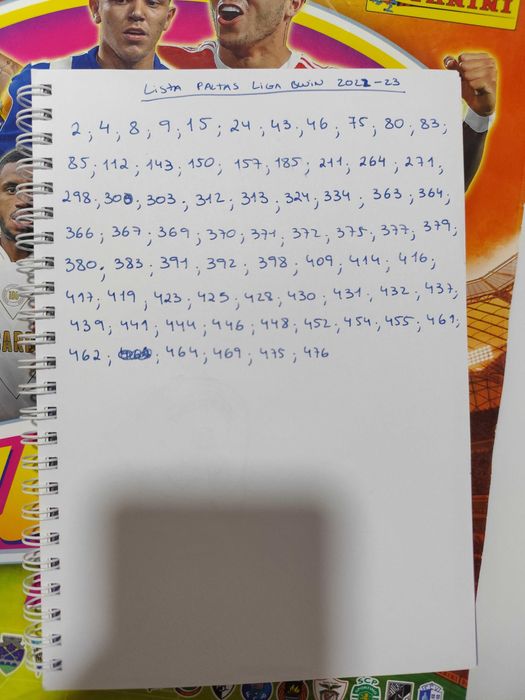 PANINI
LISTA FALTAS LIGA BWIN 2022-23
2 ; 4 ; 8 ; 9 ; 15 ; 24 ; 43 ; 46 ; 75 ; 80 ; 83 ;
85 ; 112 ; 143 ; 150 ; 157 ; 185 ; 211 ; 264 ; 271 ;
298 ; 300 ; 303 ; 312 ; 313 ; 324 ; 334 ; 363 ; 364 ;
366 ; 367 ; 369 ; 370 ; 371 ; 372 ; 375 ; 377 ; 379 ;
380 ; 383 ; 391 ; 392 ; 398 ; 409 ; 414 ; 416 ;
417 ; 419 ; 423 ; 425 ; 428 ; 430 ; 431 ; 432 ; 437 ;
439 ; 441 ; 444 ; 446 ; 448 ; 452 ; 454 ; 455 ; 461 ;
462 ; ; 464 ; 469 ; 475 ; 476
SCP